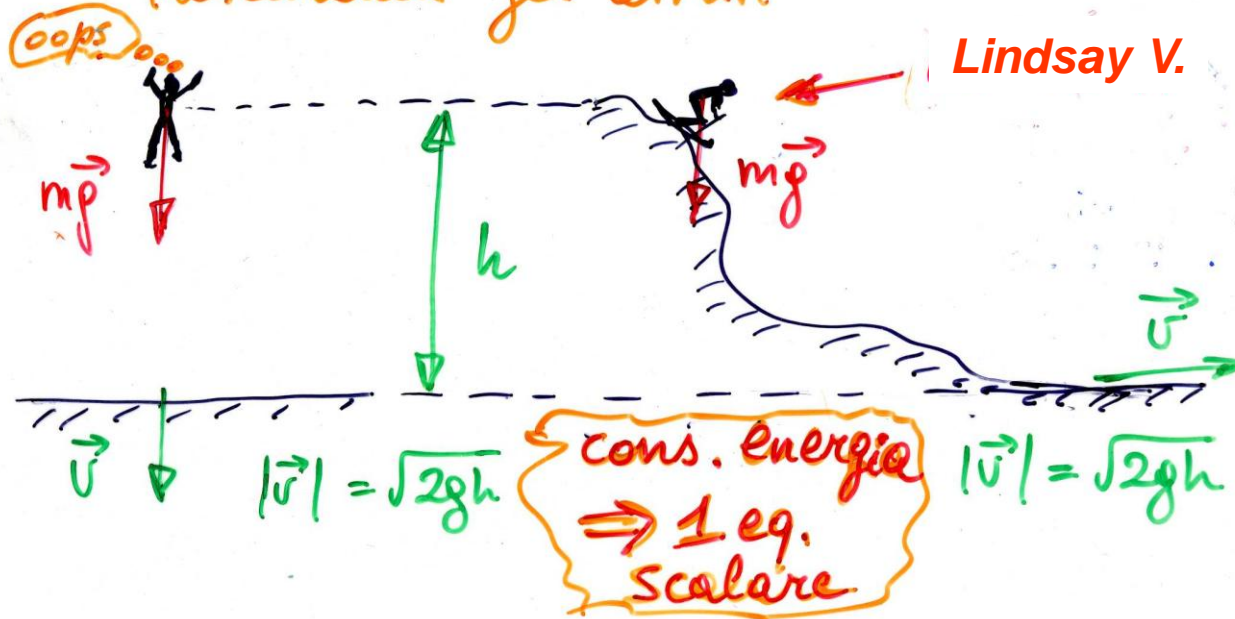 oops
Lindsay V.
mg⃗
mg⃗
h
v⃗
v⃗
|v⃗| = √2gh
cons. energia
⇒ 1 eq.
scalare
|v⃗| = √2gh